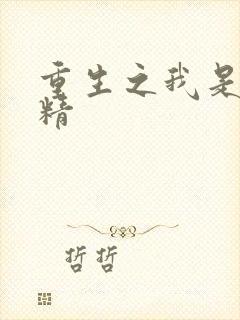 重生之我是
精
哲哲